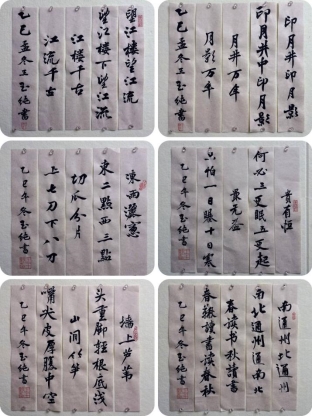 望江樓望江流
望江樓下望江流
江樓千古
江流千古
乙巳孟冬王玉纯書
印月井印月影
印月井中印月影
月井万年
月影万年
乙巳孟冬王玉纯書
凍雨灑窗
東二點西三點
切瓜分片
上七刀下八刀
乙巳年冬玉纯書
貴有恒
何必三更眠五更起
最无益
只怕一日曝十日寒
乙巳年冬玉纯書
墙上芦苇
头重脚轻根底浅
山间竹笋
嘴尖皮厚腹中空
乙巳年冬玉纯書
南通州北通州
南北通州通南北
春读书秋讀書
春秋讀書讀春秋
乙巳年冬玉纯書